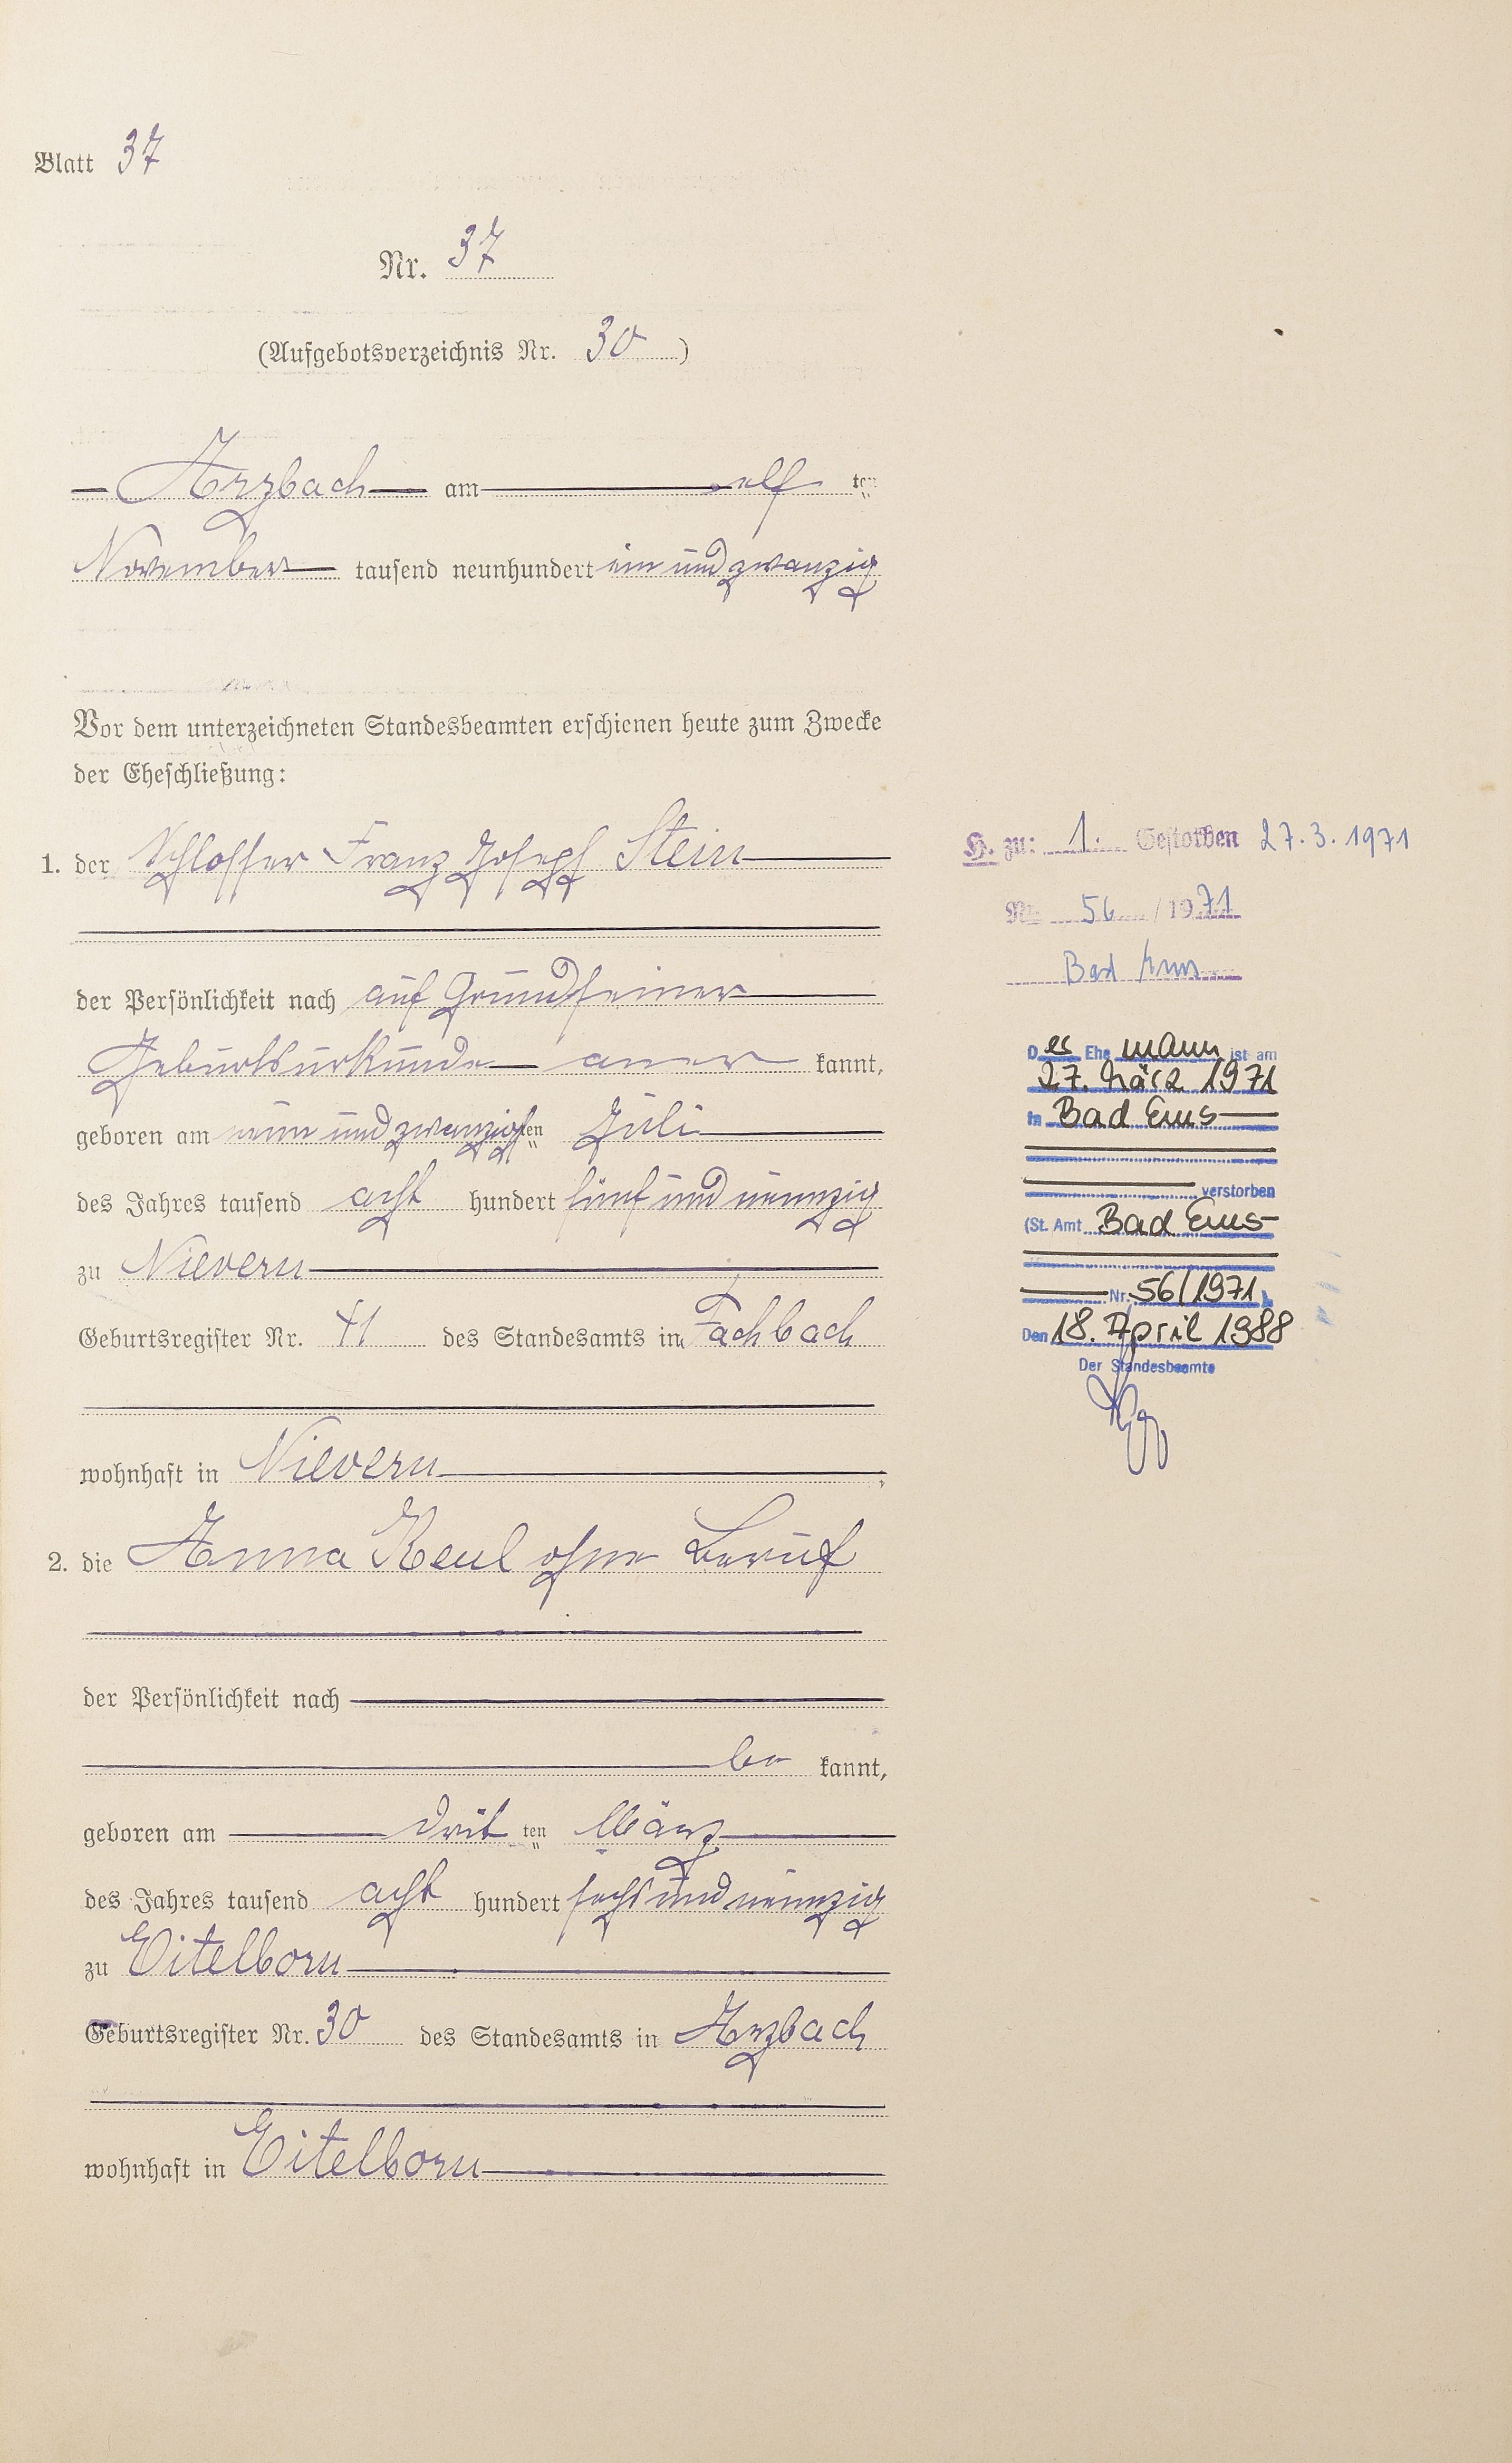 Blatt 37
Nr. 37
(Aufgebotsverzeichnis Nr. 30)
Arzbach am elf ten
November tausend neunhundert ein und zwanzig
Vor dem unterzeichneten Standesbeamten erschienen heute zum Zwecke
der Eheschließung:
1. der Schlosser Franz Joseph Stein
der Persönlichkeit nach auf Grund seiner
Geburtsurkunde aner kannt,
geboren am neun und zwanzigsten Juli
des Jahres tausend acht hundert fünf und neunzig
zu Nievern
Geburtsregister Nr. 41 des Standesamts in Fachbach
wohnhaft in Nievern,
2. die Anna Keul ohne Beruf
der Persönlichkeit nach
be kannt,
geboren am drit ten März
des Jahres tausend acht hundert sechs und neunzig
zu Eitelborn
Geburtsregister Nr. 30 des Standesamts in Arzbach
wohnhaft in Eitelborn
H. zu: 1. Gestorben 27.3.1971
Nr. 56 / 1971
Bad Ems
Der Ehemann ist am
27. März 1971
in Bad Ems
verstorben
(St. Amt Bad Ems
Nr. 56/1971)
Den 18. April 1988
Der Standesbeamte